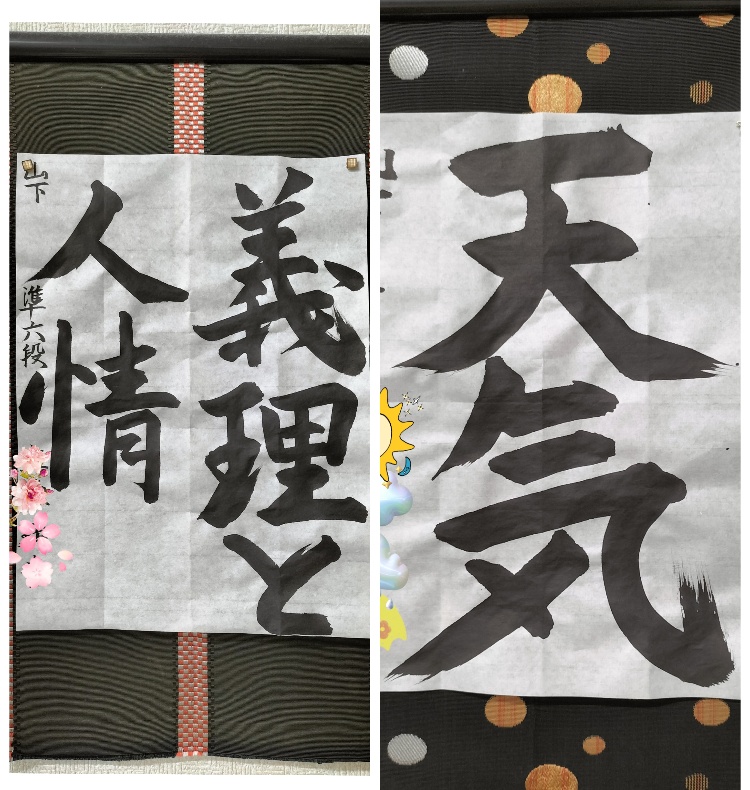 義理と
人情
山下
準六段
天気